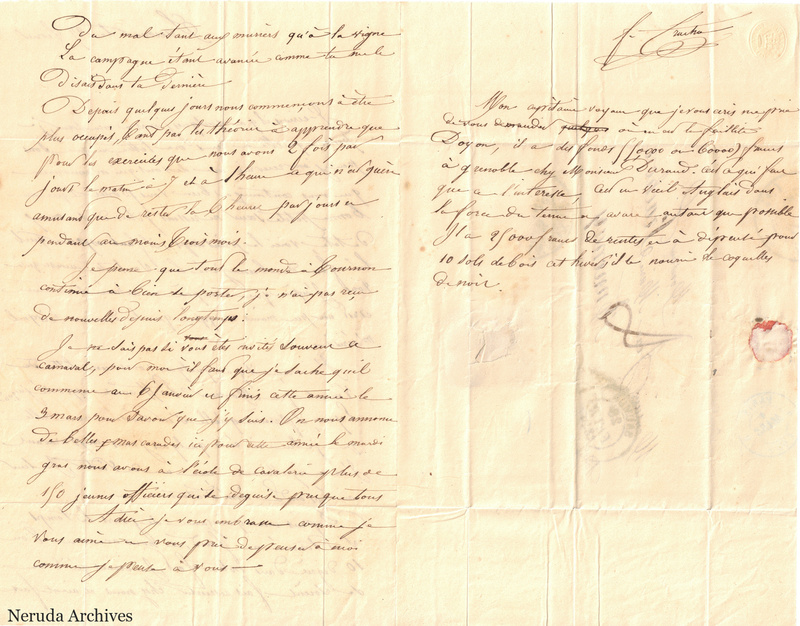 Du mal tant aux muriers qu'à la vigne
La campagne étant avancée comme tu me le
Disais dans ta dernière
Depuis quelques jours nous commençons à être
plus occupés, tant par les théorie à apprendre que
pour les exercices que nous avons 2 fois par
jours le matin à 7 et à 1 heure ce qui n'est guère
amusant que de rester heure par jours et
pendant au moins trois mois.
Je pense que tout le monde à Tournon
continue à bien se porter, je n'ai pas reçu
de nouvelles depuis longtemps.
Je ne sais pas si vous êtes invités souvent a
carnaval, pour moi il faut que je sache qu'il
commence au 6 Janvier et finis cette année le
3 mars pour savoir que j'y suis. On nous annonce
de belles mascarades ici pour cette année le mardi
gras nous avons à l'école de cavalerie plus de
150 jeunes officiers qui se deguise presque tous
Adieu je vous embrasse comme je
vous aime et vous prie de penser à moi
comme je pense à vous —
Mon capitaine voyant que je vous ecris me prie
de vous demander ou en est la faillite
Doyon, il a des fonds (50000 ou 60000) francs
à grenoble chez Monsieur Durand. C'est ce qui fait
que ça l'interesse, c'est un vieil Anglais dans
la force du terme et avare autant que possible
Il a 25000 francs de rentes et à dépensé pour
10 sols de bois cet hiver, il se nourri de coquilles
de noix.
Neruda Archives